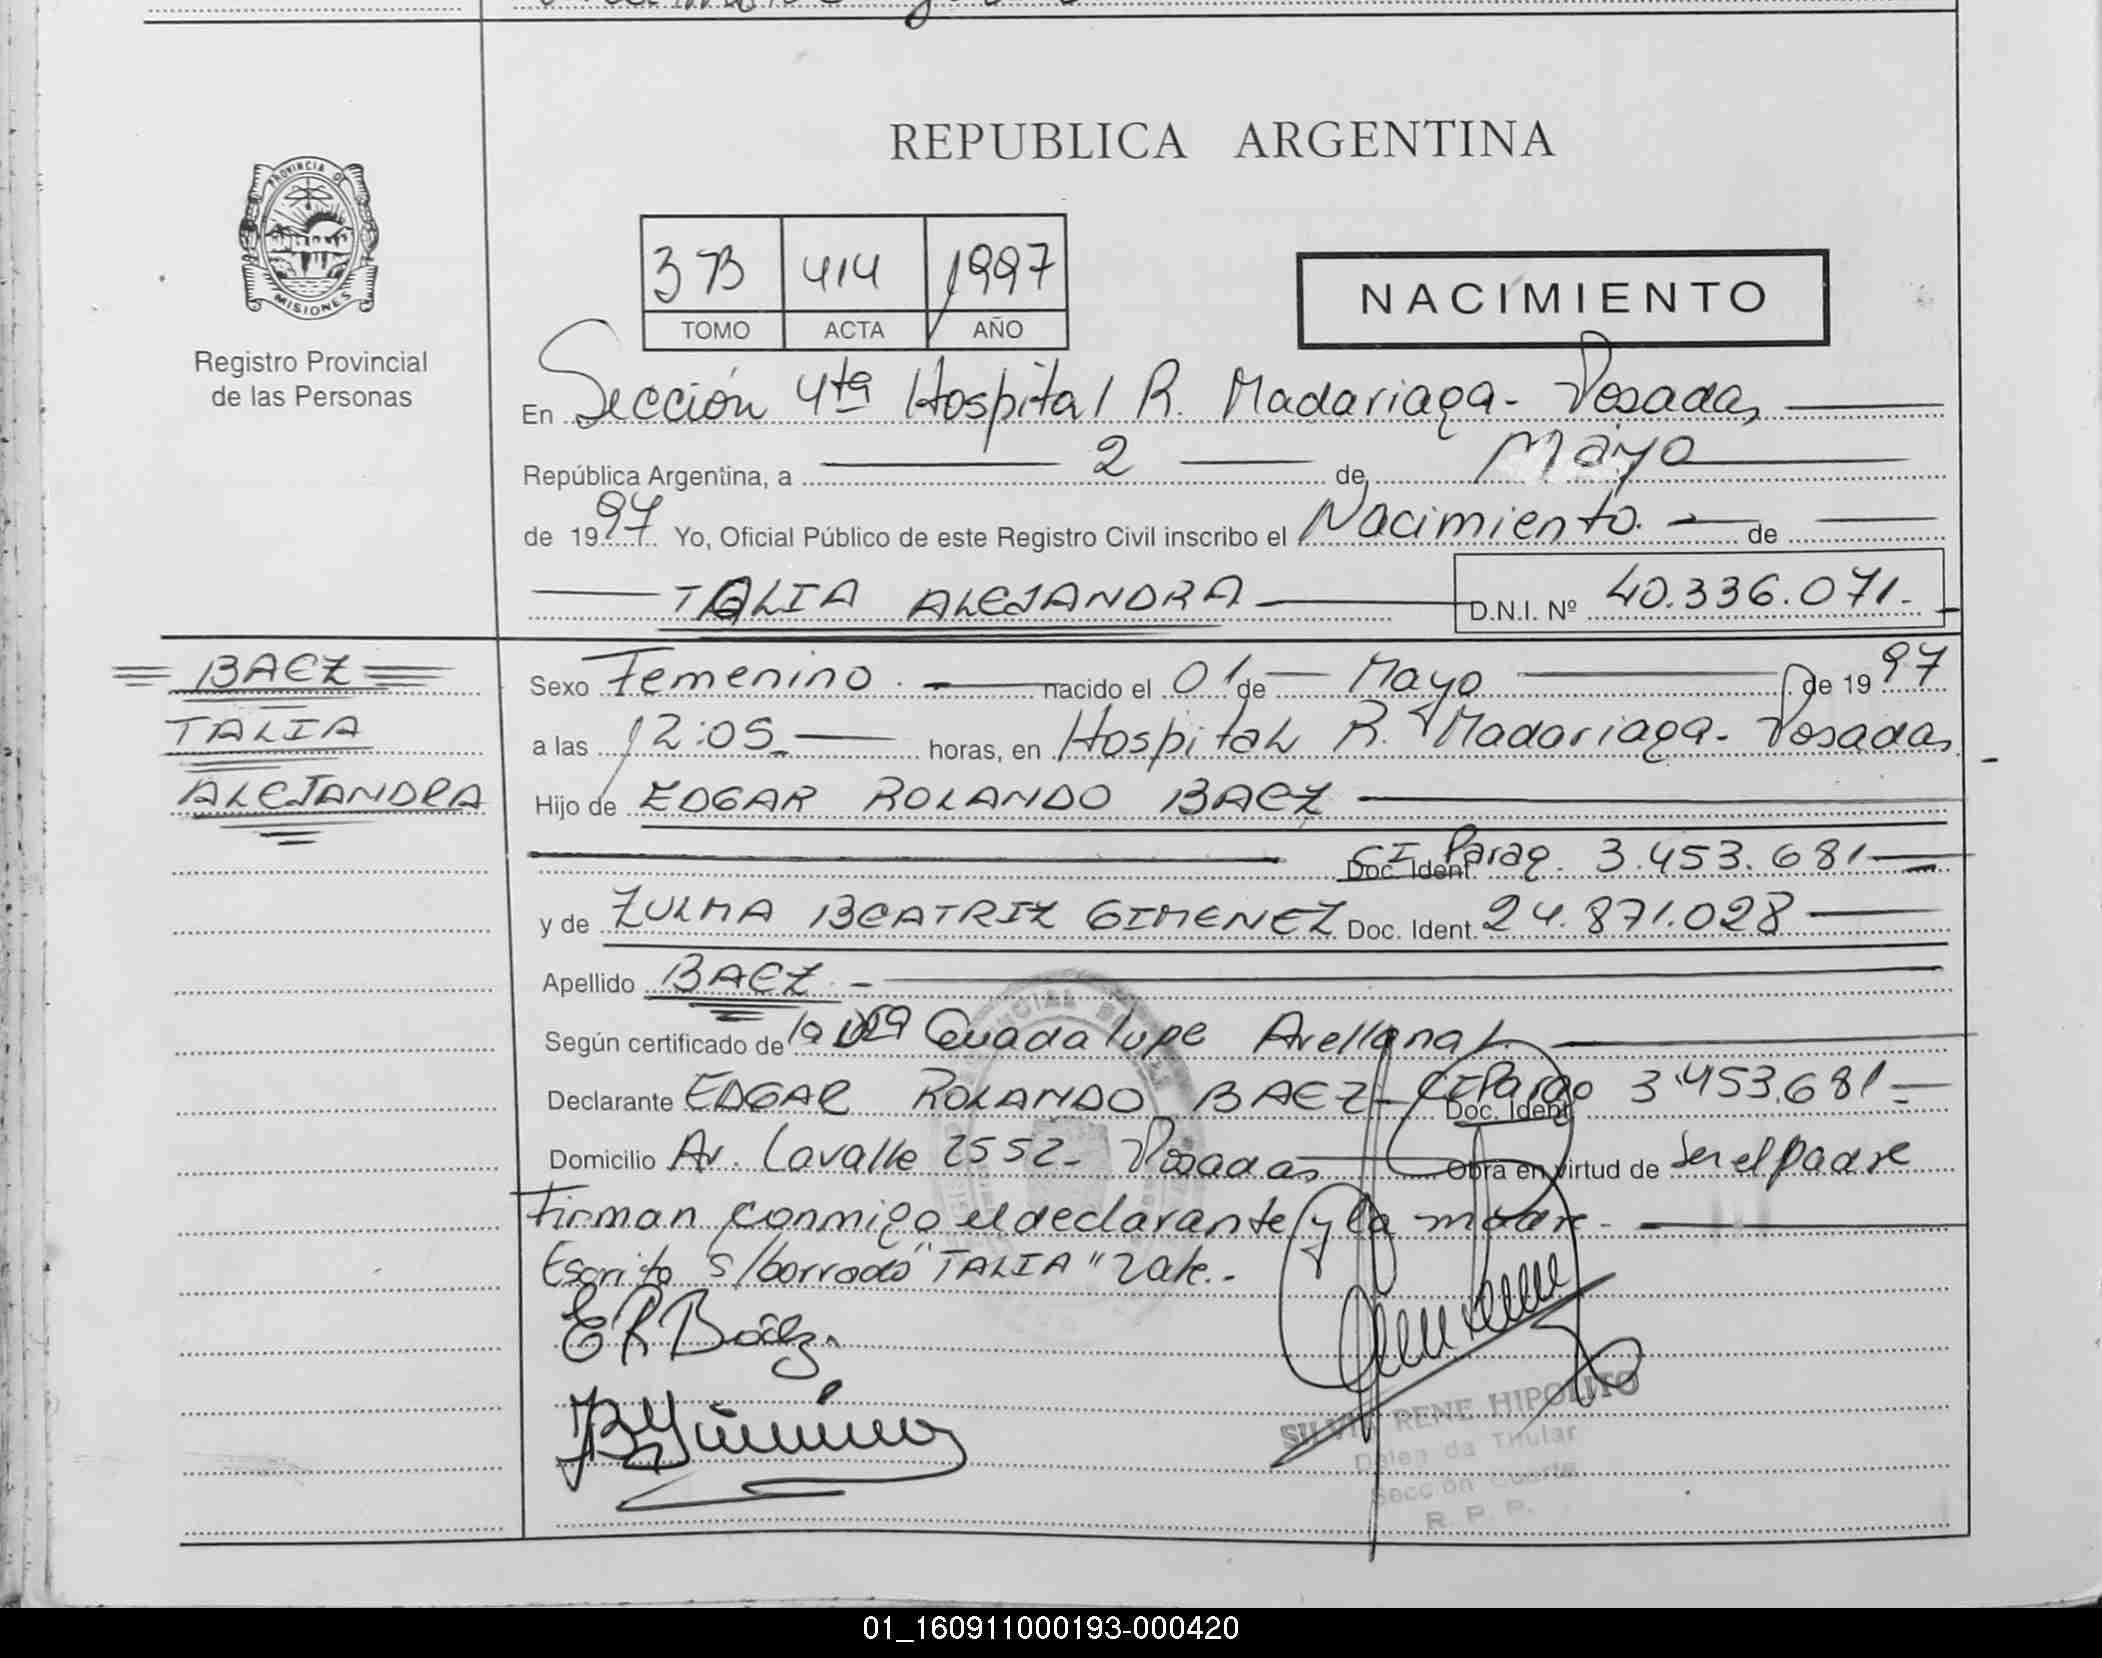 REPUBLICA ARGENTINA
PROVINCIA DE
MISIONES
Registro Provincial
de las Personas
373 414 1997
TOMO ACTA AÑO
NACIMIENTO
En Sección 4ta Hospital R. Madariaga - Posadas
República Argentina, a 2 de Mayo
de 1997 Yo, Oficial Público de este Registro Civil inscribo el Nacimiento. de
TALIA ALEJANDRA D.N.I. Nº 40.336.071.-
BAEZ
TALIA
ALEJANDRA
Sexo Femenino. nacido el 01 de Mayo de 1997
a las 12:05 horas, en Hospital R. Madariaga - Posadas.-
Hijo de EDGAR ROLANDO BAEZ
Doc. Ident. CI Parag. 3.453.681
y de ZULMA BEATRIZ GIMENEZ Doc. Ident. 24.871.028
Apellido BAEZ.-
Según certificado de la Guadalupe Arellana
Declarante EDGAR ROLANDO BAEZ - Doc. Ident. CI Parag 3.453.681-
Domicilio Av. Lavalle 2552- Posadas Obra en virtud de ser el padre
Firman conmigo el declarante y la madre.-
Escrito s/borrado "TALIA" Vale.-
E R Báez
SILVIA RENE HIPOLITO
Delegada Titular
Sección Cuarta
R. P. P.
01_160911000193-000420